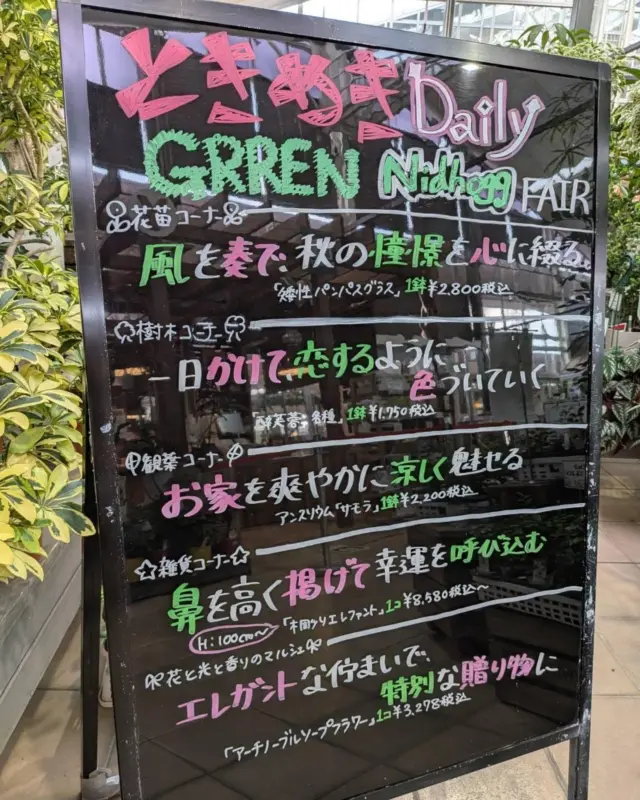 ときめきDaily
GRREN Nidhogg FAIR
花苗コーナー
風を奏で、秋の憧景を心に綴る。
「矮性パンパスグラス」1鉢¥2,800税込
樹木コーナー
一日かけて、恋するように
色づいていく
「酔芙蓉」各種 1鉢¥1,750税込
観葉コーナー
お家を爽やかに涼しく魅せる
アンスリウム「サモラ」1鉢¥2,200税込
☆雑貨コーナー☆
鼻を高く掲げて幸運を呼び込む
H:100cm~ 「木岡クリエレファント」1コ¥8,580税込~
花と光と香りのマルシェ
エレガントな佇まいで、
特別な贈り物に
「アーチノーブルソープフラワー」1コ¥3,278税込